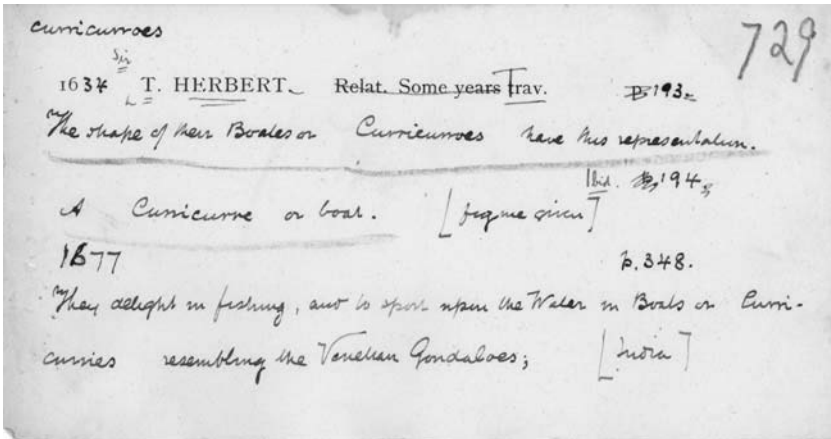 curricurroes
729
Sir
1634 T. HERBERT. Relat. Some years Trav. p. 193.
The shape of their Boates or Curricurroes have this representation.
Ibid. p. 194
A Curricurre or boat. [figure given]
1677 p. 348.
They delight in fishing, and to sport upon the Water in Boats or Curri-
curries resembling the Venetian Gondaloes; [India]